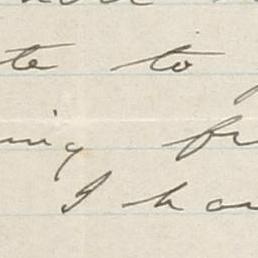 te to
ing fr
I ha